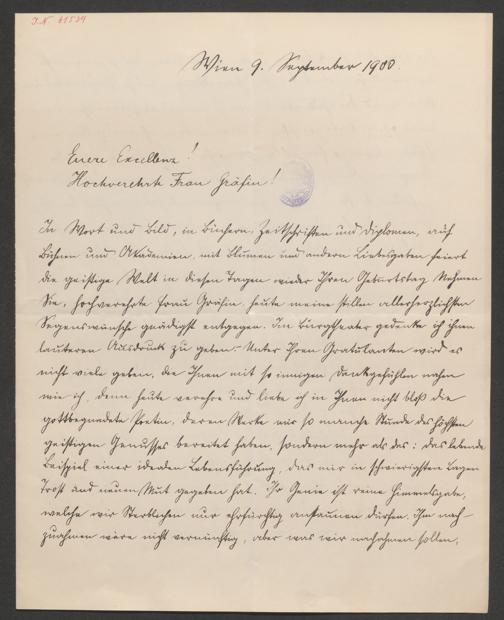 J.N. 61529
Wien 9. September 1900.
Euere Excellenz!
Hochverehrte Frau Gräfin!
In Wort und Bild, in Büchern, Zeitschriften und Diplomen, auf
Bühnen und Akademien, mit Blumen und andern Liebesgaben feiert
die geistige Welt in diesen Tagen wieder Ihren Geburtstag. Nehmen
Sie, hochverehrte Frau Gräfin, heute meine stillen allerherzlichsten
Segenswünsche gnädigst entgegen. Im Burgtheater gedenke ich ihnen
lauteren Ausdruck zu geben. – Unter Ihren Gratulanten wird es
nicht viele geben, die Ihnen mit so innigen Dankgefühlen nahen
wie ich, denn heute verehre und liebe ich in Ihnen nicht bloß die
gottbegnadete Poetin, deren Werke mir so manche Stunde des höchsten
geistigen Genusses bereitet haben, sondern mehr als das: das lebende
Beispiel einer idealen Lebensführung, das mir in schwierigsten Lagen
Trost und neuen Mut gegeben hat. Ihr Genie ist reine Himmelsgabe,
welche wir Sterblichen nur ehrfürchtig anstaunen dürfen. Ihm nach-
zuahmen wäre nicht vernünftig, aber was wir nachahmen sollen,